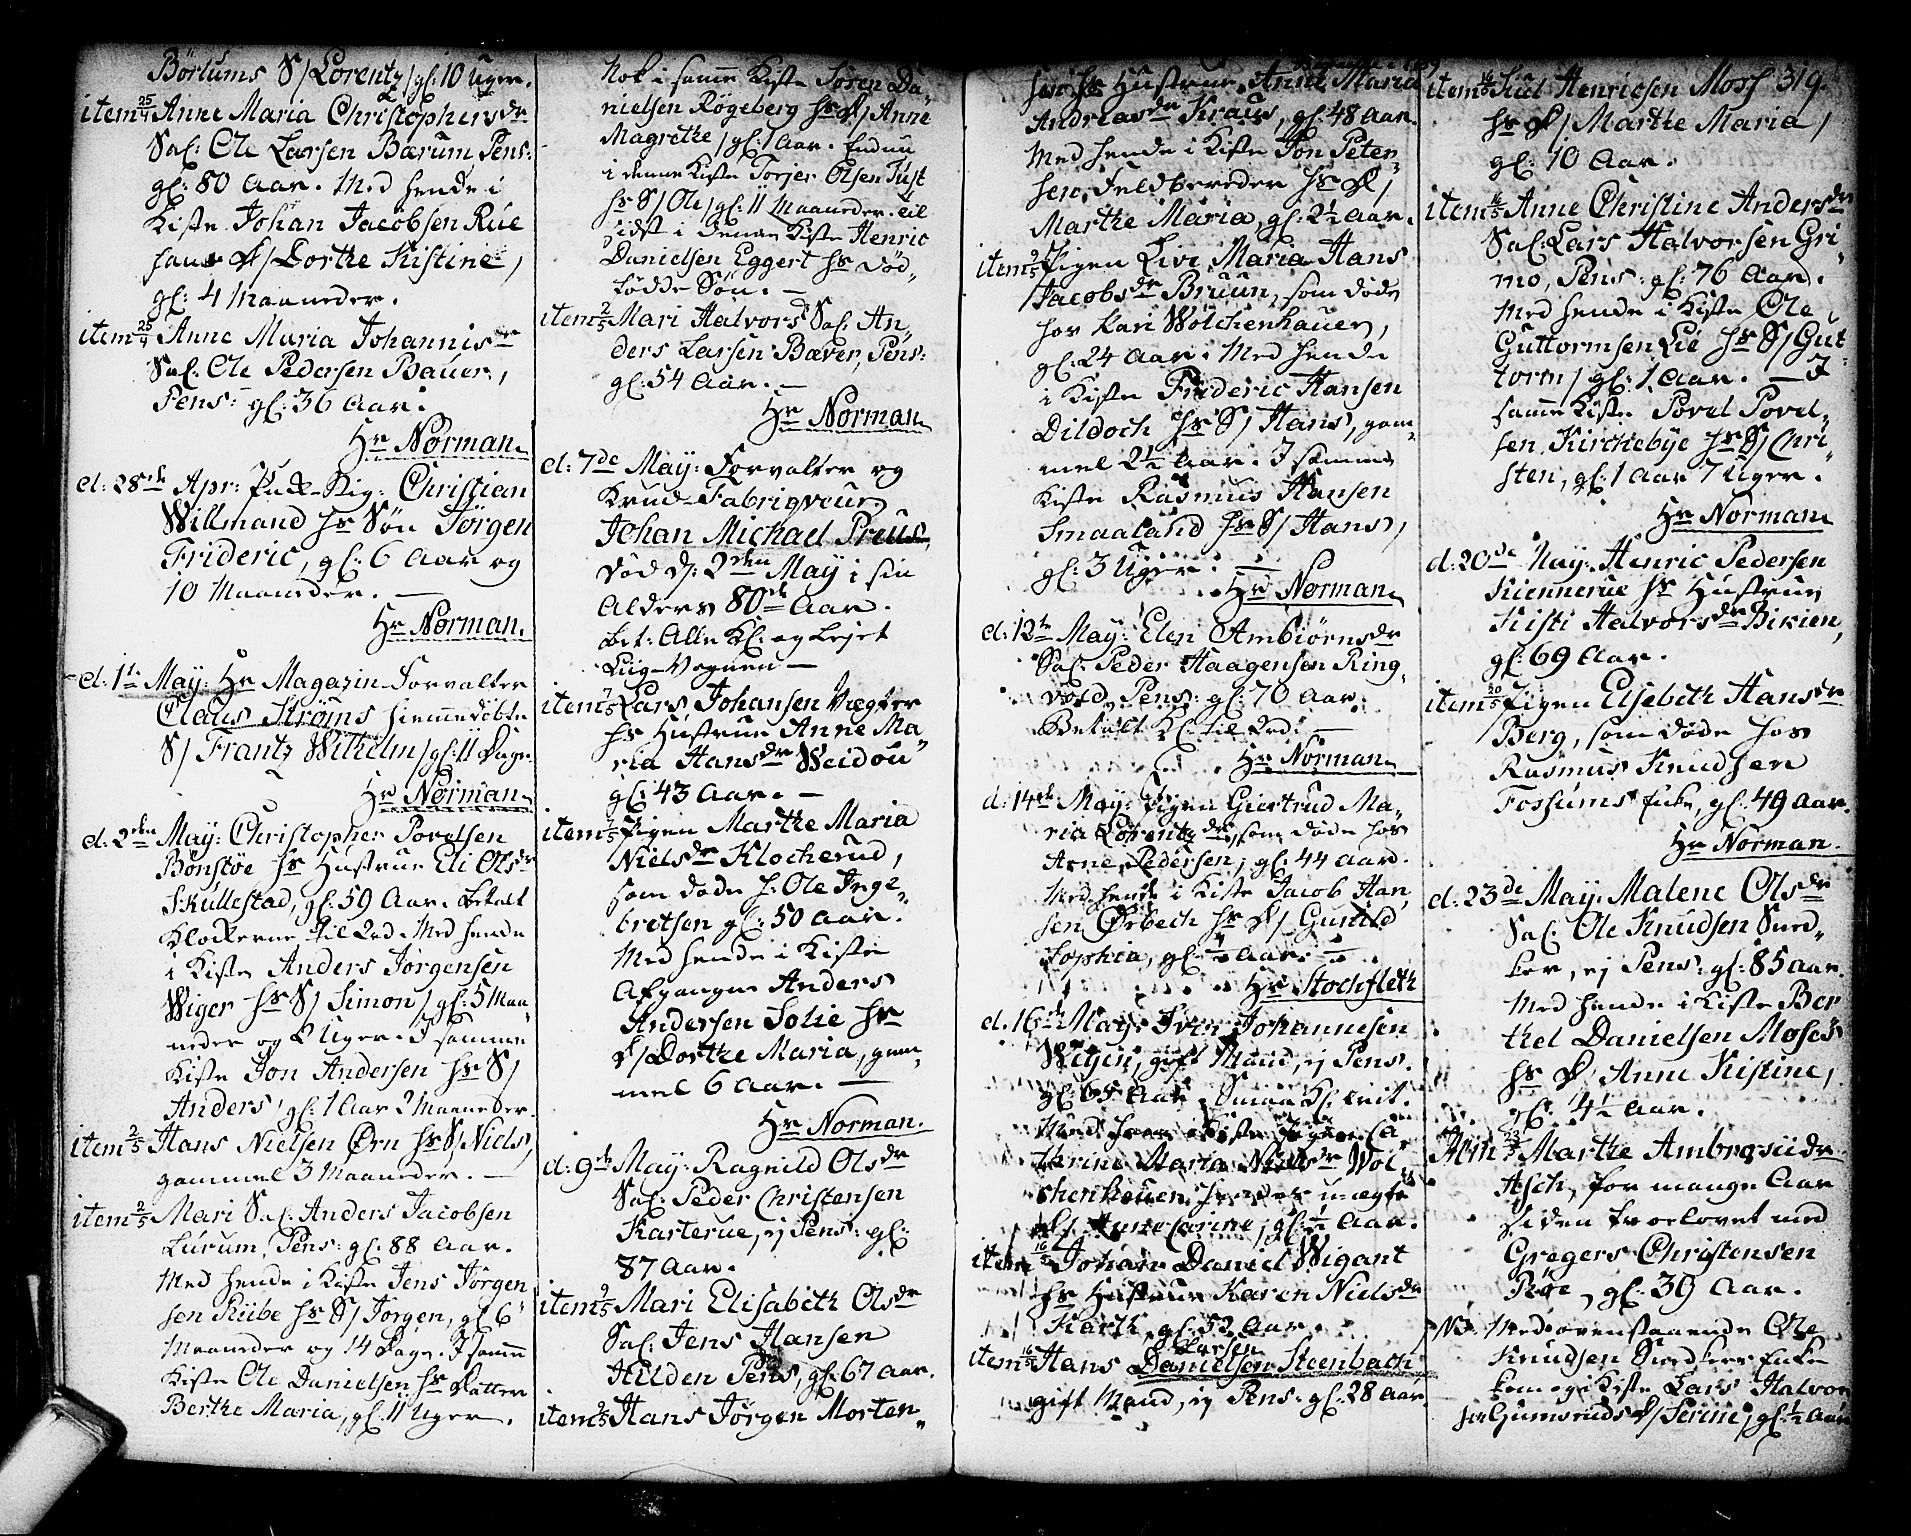 Börlums S/ Lorentz/ gl: 10 Uger.
item 25/4 Anne Maria Christophersdr
Sal: Ole Larsen Bærum Pens:
gl: 80 Aar. Med hende i
Kiste Johan Jacobsen Rue
hans D/ Dorthe Kistine,
gl: 4 Maaneder.
item 25/4 Anne Maria Johannisdr
Sal: Ole Pedersen Bauer,
Pens: gl: 36 Aar.
Hr Norman.
d: 28de Apr: Christian
Willmand hs Søn Jörgen
Frideric, gl: 6 Aar og
10 Maaneder. —
Hr Norman.
d: 1te May: Hr Magazin-Forvalter
Claus Strøms hiemmedøbte
S/ Frantz Wilhelm/ gl: 11 Dage.
Hr Norman.
d: 2den May: Christopher Povelsen
Bönstöe hs Hustrue Eli Olsdr
Skullestad, gl: 59 Aar. betalt
Klockerne til 2rd Med hende
i Kiste Anders Jorgensen
Wiger hs S/ Simon/ gl: 5 Maa„
neder og 2 Uger. I samme
Kiste Jon Andersen hs S/
Anders, gl: 1 Aar 2 Maaneder.
item 2/5 Hans Nielsen Ørn hs S/ Niels,
gammel 3 Maaneder. —
item 2/5 Mari Sal: Anders Jacobsen
Lurum, Pens: gl: 88 Aar.
Med hende i Kiste Jens Jörgen
sen Riibe hs S/ Jörgen, gl 6
Maaneder og 14 Dage. I samme
Kiste Ole Danielsen hs Datter
Berthe Maria, gl: 11 Uger.
Nok i samme Kiste Sören Da„
nielsen Rögeberg hs D/ Anne
Magrethe/ gl: 1 Aar. Endnu
i denne Kiste Torjer Olsen Tust
hs S/ Ole/ gl: 11 Maaneder. til
sidst i denne Kiste Henric
Danielsen Eggert hs Död„
födde Søn. —
item 2/5 Mari Halvorsd Sal: An„
ders Larsen Bæver, Pens:
gl: 54 Aar. —
Hr Norman.
d: 7de May: Forvalter og
Krud-Fabriqveur
Johan Michael Preus,
död d: 2den May i sin
Alders 80de Aar.
bet: Alle Kl: og Lejet
Liig-Vognen —
item 7/5 Lars Johansen Vægter
hs Hustrue Anne Ma„
ria Hansdr Weidou
gl: 43 Aar. —
item 7/5 Pigen Marthe Maria
Nielsdr Klocherud,
som döde h: Ole Inge„
bretsen gl: 50 Aar.
Med hende i Kiste
Afgangne Anders
Andersen Solie hs
D/ Dorthe Maria, gam„
mel 6 Aar. —
Hr Norman.
d: 9de May: Ragnild Olsdr
Sal: Peder Christensen
Karterue, ej Pens: gl:
87 Aar.
item 9/5 Mari Elisabeth Olsdr
Sal: Jens Hansen
Hilden Pens, gl: 67 Aar.
item 9/5 Hans Jörgen Morten„
sen hs Hustrue Anne Maria
Andreasdr Kraus, gl: 48 Aar.
Med hende i Kiste Jon Peter„
sen, Feldbereder hs D/
Marthe Maria, gl: 2½ Aar.
item 9/5 Pigen Live Maria Hans
Jacobsdr Bruun, som döde
hos Kari Wolchenhauer,
gl: 24 Aar. Med hende
i Kiste Frideric Hansen
Dildoch hs S/ Hans, gam„
mel 2½ Aar. I samme
Kiste Rasmus Hansen
Smaaland hs S/ Hans,
gl: 3 Uger.
Hr Norman.
d: 12te May: Elen Ambiörnsdr
Sal: Peder Haagensen Ring„
vold, Pens: gl: 70 Aar.
Betalt Kl: til 2rd: —
Hr Norman.
d: 14de May: Pigen Giertrud Ma„
ria Lorentzdr, som döde hos
Arne Pedersen, gl: 44 Aar.
Med hende i Kiste Jacob Han„
sen Ørbech hs D/ Gunild
Sophia, gl: Aar.
Hr Stochfleth
d: 16de May: Iver Johannesen
gift Mand, ej Pens.
gl: 65 Aar. Smaa Kl:
Med ham i Kiste Pigen Ca„
thrine Maria Nielsdr Wol„
chenheuer, hendes uægte
D/ Anne Carine, gl: ½ Aar.
item 16/5 Johan Daniel Wigant
hs Hustrue Karen Nielsdr
Karth, gl: 52 Aar.
Larsen
item 16/5 Hans Danielsen Steenbach
gift Mand, ej Pens: gl: 28 Aar.
319.
item 16/5 Henricsen Moss
hs D/ Marthe Maria,
gl: 10 Aar.
item 16/5 Anne Christine Andersdr
Sal: Lars Halvorsen Gri„
mo, Pens: gl: 76 Aar.
Med hende i Kiste Ole
Guttormsen Lie hs S/ Gut„
torm/ gl: 1 Aar. — I
samme Kiste Povel Povel„
sen Kirchebye hs S/ Chri„
sten, gl: 1 Aar 7 Uger.
Hr Norman
d: 20de May. Henric Pedersen
Kiennerue hs Hustrue
Kisti Halvorsdr Bikien,
gl: 69 Aar.
item 20/5 Pigen Elsebeth Hansdr
Berg, som döde hos
Rasmus Knudsen
Fossums Enke, gl: 49 Aar.
Hr Norman.
d: 23de May: Malene Olsdr
Sal: Ole Knudsen Sned„
ker, ej Pens: gl: 85 Aar.
Med hende i Kiste Ber
thel Danielsen Moses
hs D/ Anne Kistine,
gl: 4½ Aar.
item 23/5 Marthe Ambrosiidr
Asch, for mange Aar
siden trolovet med
Gregers Christensen
Röe, gl: 39 Aar.
NB. Med ovenstaaende Ole
Knudsen Snedkers Enke
kom og i Kiste Lars Halvor
sen Gumseruds D/ Serine, gl: ½ Aar